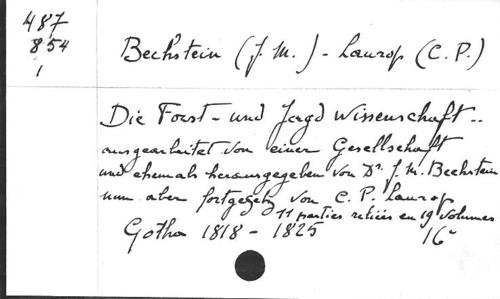 487
854
1
Bechstein (J. M.) - Laurop (C. P.)
Die Forst - und Jagd Wissenschaft ..
ausgearbeitet von einer Gesellschaft
und ehemals herausgegeben von Dr. J. M. Bechstein
nun aber fortgesetz von C. P. Laurop
11 parties reliées en 19 volumes
Gotha 1818 - 1825 16°